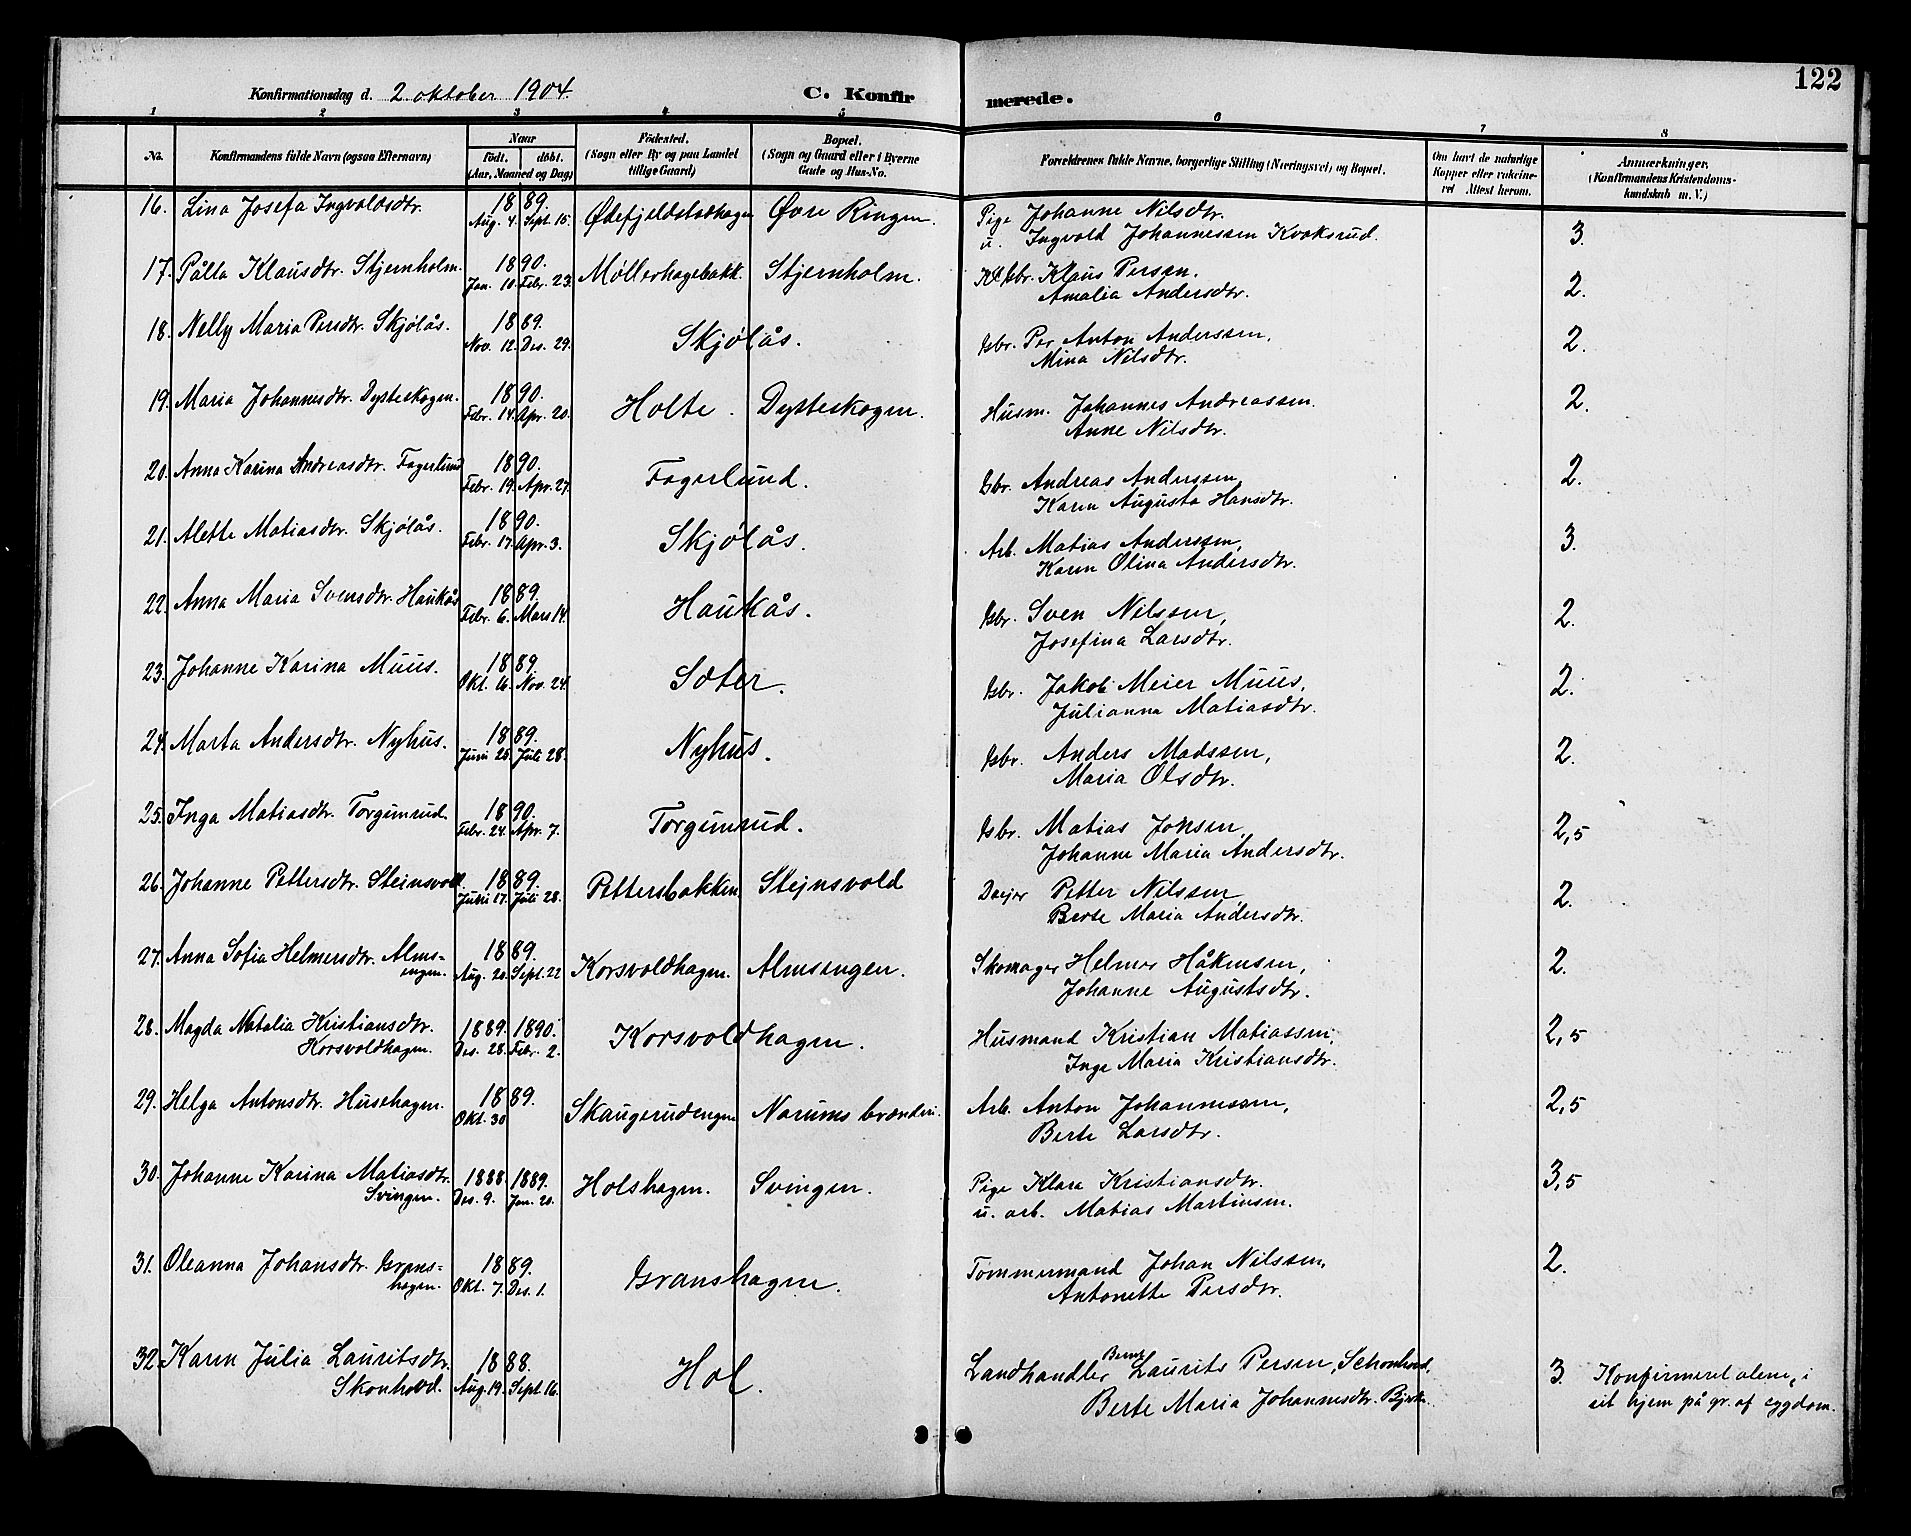 122
Konfirmationsdag d. 2 oktober 1904. C. Konfirmerede.
1 2 3 4 5 6 7 8
No. Konfirmandens fulde Navn (ogsaa Efternavn) Naar födt. döbt. (Aar, Maaned og Dag) Födested. (Sogn eller By og paa Landet tillige Gaard) Bopæl. (Sogn og Gaard eller i Byerne Gade og Hus-No. Forældrenes fulde Navne, borgerlige Stilling (Næringsvei) og Bopæl. Om havt de naturlige Kopper eller vakcineret. Attest herom. Anmærkninger. (Konfirmandens Kristendomskundskab m. V.)
16. Lina Josefa Ingvoldsdtr. 1889. Aug. 4. Sept. 15. Ødefjeldstadhagen Øvre Ringen. Pige Johanne Nilsdtr.
u. Ingvold Johannessen Kvoksrud. 3.
17. Pålla Klausdtr. Stjernholm. 1890. Jan. 10. Febr. 23. Møllerhagebakk. Stjernholm. Gbr. Klaus Persen.
Amalia Andersdtr. 2.
18. Nelly Maria Persdtr. Skjølås. 1889. Nov. 12. Des. 29. Skjølås. Gbr. Per Anton Anderssen,
Mina Nilsdtr. 2.
19. Maria Johannesdtr. Dysteskogen. 1890. Febr. 14. Apr. 20. Holte. Dysteskogen. Husm. Johannes Andreassen.
Anne Nilsdtr. 2.
20. Anna Karina Andreasdtr. Fagerlund 1890. Febr. 19. Apr. 27. Fagerlund. Gbr. Andreas Anderssen,
Karen Augusta Hansdtr. 2.
21. Alette Matiasdtr. Skjølås. 1890. Febr. 17. Apr. 3. Skjølås. Arb. Matias Anderssen,
Karen Olina Andersdtr. 3.
22. Anna Maria Svensdtr. Haukås 1889. Febr. 6. Mars 14. Haukås. Gbr. Sven Nilssen,
Josefina Larsdtr. 2.
23. Johanne Karina Muus. 1889. Okt. 16. Nov. 24. Sæter. Gbr. Jakob Meier Muus,
Julianna Matiasdtr. 2.
24. Marta Andersdtr. Nyhus. 1889. Juni 25. Juli 28. Nyhus. Gbr. Anders Madssen,
Maria Olsdtr. 2.
25. Inga Matiasdtr. Torgunrud. 1890. Febr. 24. Apr. 7. Torgunrud. Gbr. Matias Jonsen,
Johanne Maria Andersdtr. 2,5
26. Johanne Pettersdtr. Steinsvold. 1889. Juni 17. Juli 28. Pettersbakken Stejnsvold Drejer Petter Nilssen
Berte Maria Andersdtr. 2.
27. Anna Sofia Helmersdtr. Almsengen. 1889. Aug. 20. Sept. 22 Korsvoldhagen. Almsengen. Skomager Helmer Håkensen,
Johanne Augustsdtr. 2.
28. Magda Natalia Kristiansdtr. 1889. 1890.
Korsvoldhagen. Des. 28. Febr. 2. Korsvoldhagen. Husmand Kristian Matiassen,
Inge Maria Kristiansdtr. 2,5
29. Helga Antonsdtr. Husehagen. 1889. Okt. 30 Skaugerudengen Narums brænderi. Arb. Anton Johannessen,
Berte Larsdtr. 2,5
30. Johanne Karina Matiasdtr. 1888. 1889.
Svingen. Des. 9. Jan. 20. Holshagen. Svingen. Pige Klara Kristiansdtr.
u. arb. Matias Martinsen. 3,5
31. Oleanna Johansdtr. Granshagen. 1889. Okt. 7. Des. 1. Granshagen. Tømmermand Johan Nilssen,
Antonette Persdtr. 2.
32. Karen Julia Lauritsdtr. 1888.
Skonhovd. Aug. 19. Sept. 16. Hol. Landhandler Bernt Laurits Persen, Schonhovd,
Berte Maria Johannesdtr. 3. Konfirmeret alene, i
sit hjem på gr. af sygdom.